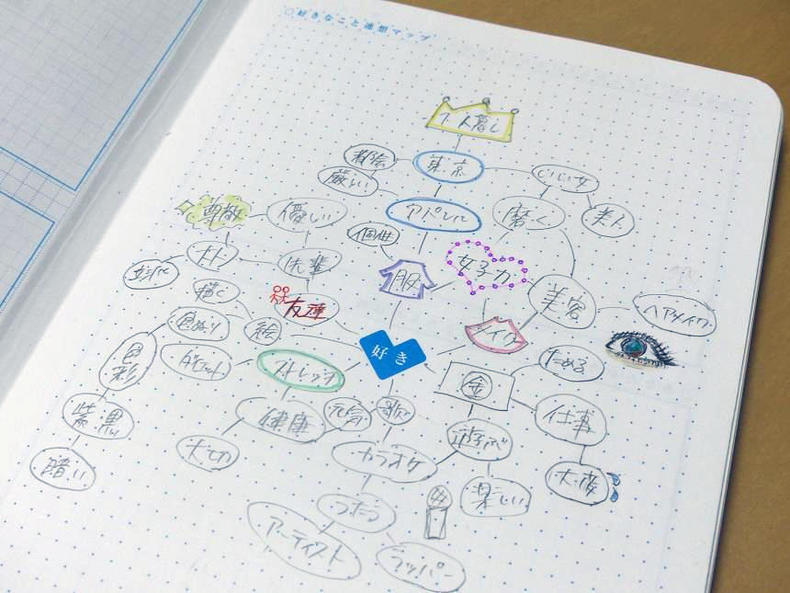 好きなこと発掘マップ
一人暮し
都会
東京
いい女
厳しい
尊敬
優しい
アパレル
磨く
美人
個性
大人
先輩
服
女子力
立派
描く
友達
美容
ヘアメイク
色ぬり
絵
好き
メイク
色彩
ストレッチ
金
ためる
紫
黒
健康
元気
歌
遊ぶ
仕事
暗い
大切
カラオケ
楽しい
大変
うたう
アーティスト
ラッパー